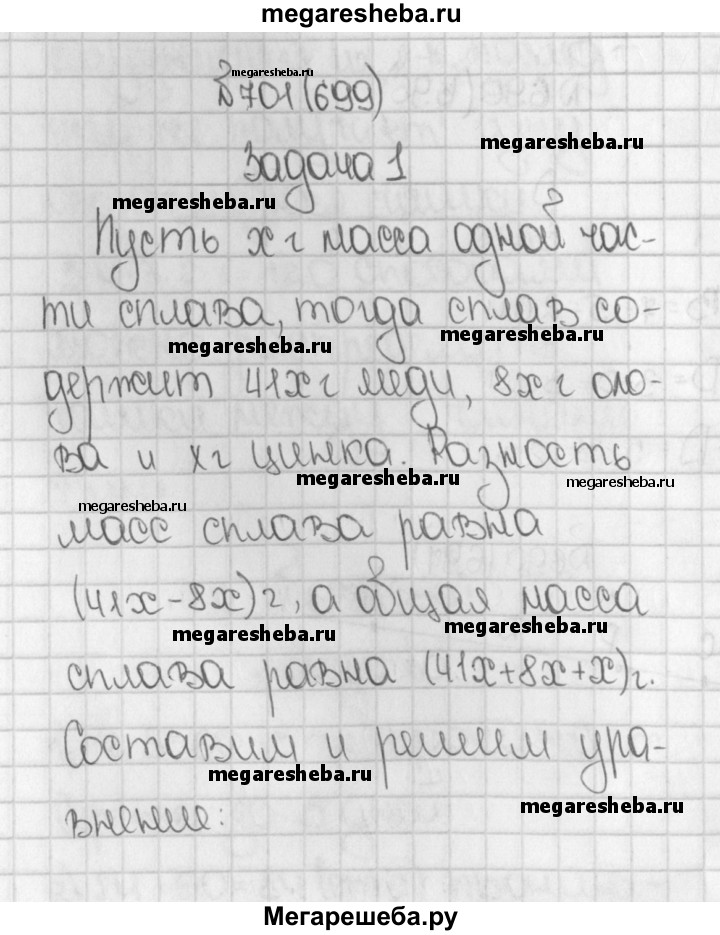 megaresheba.ru
megaresheba.ru
№701(699)
megaresheba.ru
Задача 1
megaresheba.ru
Пусть x г масса одной час-
ти сплава, тогда сплав со-
megaresheba.ru
megaresheba.ru
держит 41x г меди, 8x г оло-
ва и x г цинка. Разность
megaresheba.ru
megaresheba.ru
megaresheba.ru
масс сплава равна
(41x-8x)г, а общая масса
megaresheba.ru
megaresheba.ru
сплава равна (41x+8x+x)г.
Составим и решим ура-
megaresheba.ru
megaresheba.ru
внение:
Мегарешеба.ру